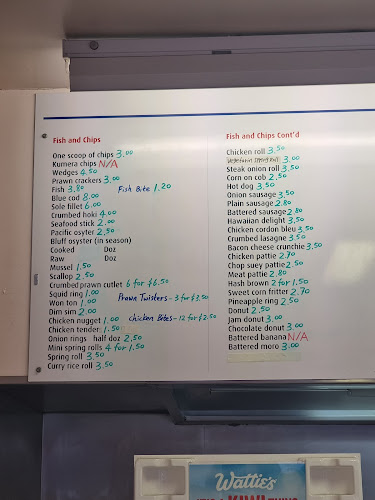 Fish and Chips
One scoop of chips 3.00
Kumera chips N/A
Wedges 4.50
Prawn crackers 3.00
Fish 3.80 Fish Bite 1.20
Blue cod 8.00
Sole fillet 6.00
Crumbed hoki 4.00
Seafood stick 2.00
Pacific oyster 2.50
Bluff osyster (in season)
Cooked Doz
Raw Doz
Mussel 1.50
Scallop 2.50
Crumbed prawn cutlet 6 for $6.50
Squid ring 1.00
Won ton 1.00 Prawn Twisters - 3 for $3.50
Dim sim 2.00
Chicken nugget 1.00 Chicken Bites - 12 for $2.50
Chicken tender 1.50
Onion rings half doz 2.50
Mini spring rolls 4 for 1.50
Spring roll 3.50
Curry rice roll 3.50
Fish and Chips Cont'd
Chicken roll 3.50
Vegetarian Spring Roll 3.00
Steak onion roll 3.50
Corn on cob 2.50
Hot dog 3.50
Onion sausage 3.50
Plain sausage 2.80
Battered sausage 2.80
Hawaiian delight 3.50
Chicken cordon bleu 3.50
Crumbed lasagne 3.50
Bacon cheese crunchie 3.50
Chicken pattie 2.70
Chop suey pattie 2.50
Meat pattie 2.80
Hash brown 2 for 1.50
Sweet corn fritter 2.70
Pineapple ring 2.50
Donut 2.50
Jam donut 3.00
Chocolate donut 3.00
Battered banana N/A
Battered moro 3.00
Wattie's